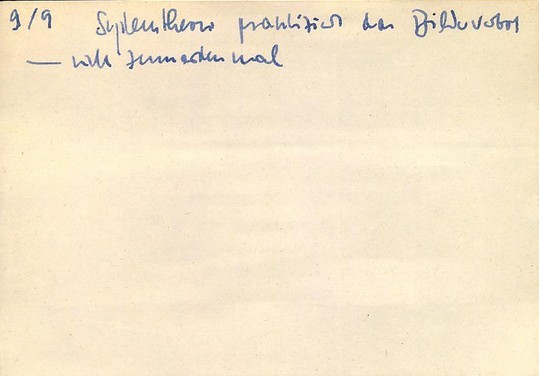 9/9 Systemtheorie praktiziert das Bilderverbot
— nicht zum ersten mal